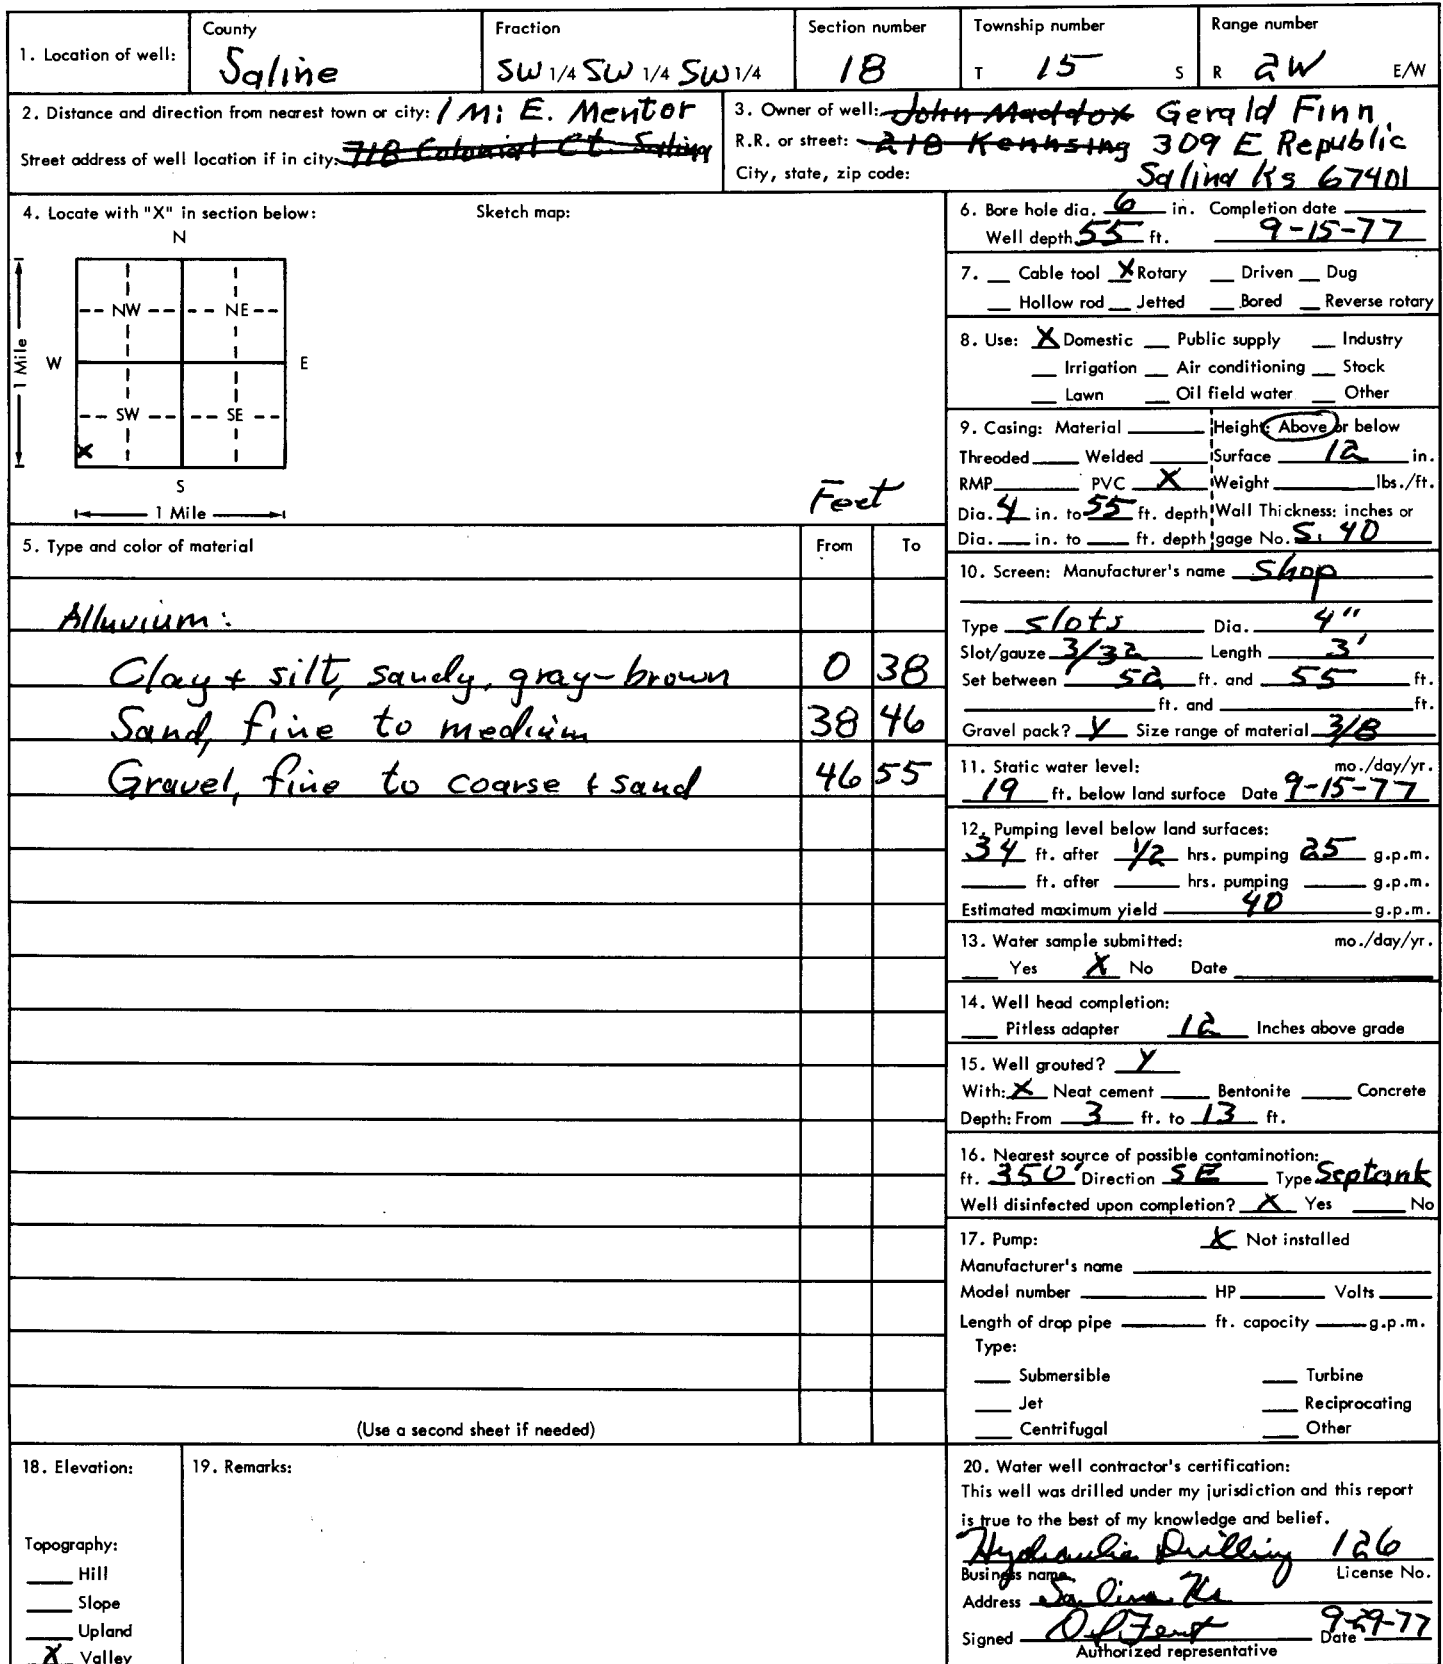 County Fraction Section number Township number Range number
1. Location of well: Saline SW 1/4 SW 1/4 SW 1/4 18 T 15 S R 2W E/W
2. Distance and direction from nearest town or city: 1 Mi E. Mentor
Street address of well location if in city: 718 Colonial Ct. Salina
3. Owner of well: John Maddox Gerald Finn
R.R. or street: 218 Kenhsing 309 E Republic
City, state, zip code: Salina Ks 67401
4. Locate with "X" in section below: Sketch map:
N
NW NE
W E
1 Mile
SW SE
X
S
1 Mile
Feet
5. Type and color of material From To
Alluvium:
Clay + silt, sandy, gray-brown 0 38
Sand, fine to medium 38 46
Gravel, fine to coarse + sand 46 55
(Use a second sheet if needed)
6. Bore hole dia. 6 in. Completion date
Well depth 55 ft. 9-15-77
7. Cable tool X Rotary Driven Dug
Hollow rod Jetted Bored Reverse rotary
8. Use: X Domestic Public supply Industry
Irrigation Air conditioning Stock
Lawn Oil field water Other
9. Casing: Material Height: Above or below
Threaded Welded Surface 12 in.
RMP PVC X Weight lbs./ft.
Dia. 4 in. to 55 ft. depth Wall Thickness: inches or
Dia. in. to ft. depth gage No. S. 40
10. Screen: Manufacturer's name Shop
Type slots Dia. 4"
Slot/gauze 3/32 Length 3'
Set between 52 ft. and 55 ft.
ft. and ft.
Gravel pack? Y Size range of material 3/8
11. Static water level: mo./day/yr.
19 ft. below land surface Date 9-15-77
12. Pumping level below land surfaces:
34 ft. after 1/2 hrs. pumping 25 g.p.m.
ft. after hrs. pumping g.p.m.
Estimated maximum yield 40 g.p.m.
13. Water sample submitted: mo./day/yr.
Yes X No Date
14. Well head completion:
Pitless adapter 12 Inches above grade
15. Well grouted? Y
With: X Neat cement Bentonite Concrete
Depth: From 3 ft. to 13 ft.
16. Nearest source of possible contamination:
ft. 350' Direction SE Type Septank
Well disinfected upon completion? X Yes No
17. Pump: X Not installed
Manufacturer's name
Model number HP Volts
Length of drop pipe ft. capacity g.p.m.
Type:
Submersible Turbine
Jet Reciprocating
Centrifugal Other
18. Elevation:
Topography:
Hill
Slope
Upland
X Valley
19. Remarks:
20. Water well contractor's certification:
This well was drilled under my jurisdiction and this report
is true to the best of my knowledge and belief.
Hydraulic Drilling 126
Business name License No.
Address Salina Ks
Signed Date 9-29-77
Authorized representative